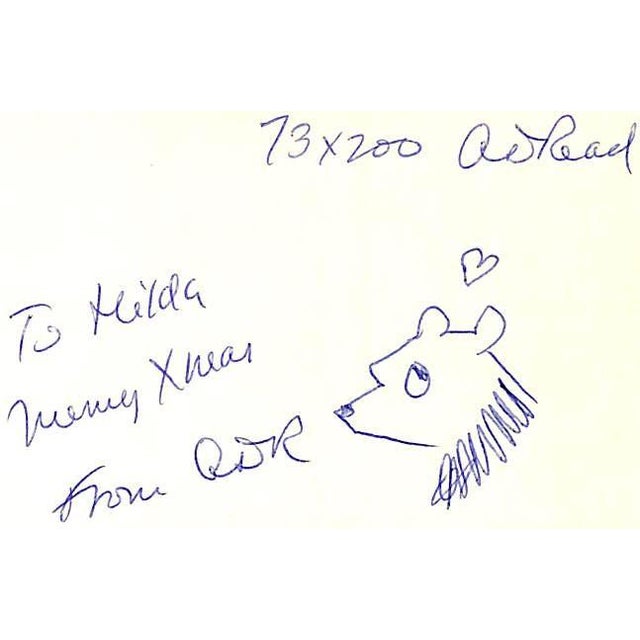 73x200 ADRead
To Hilda
Merry Xmas
From ADR